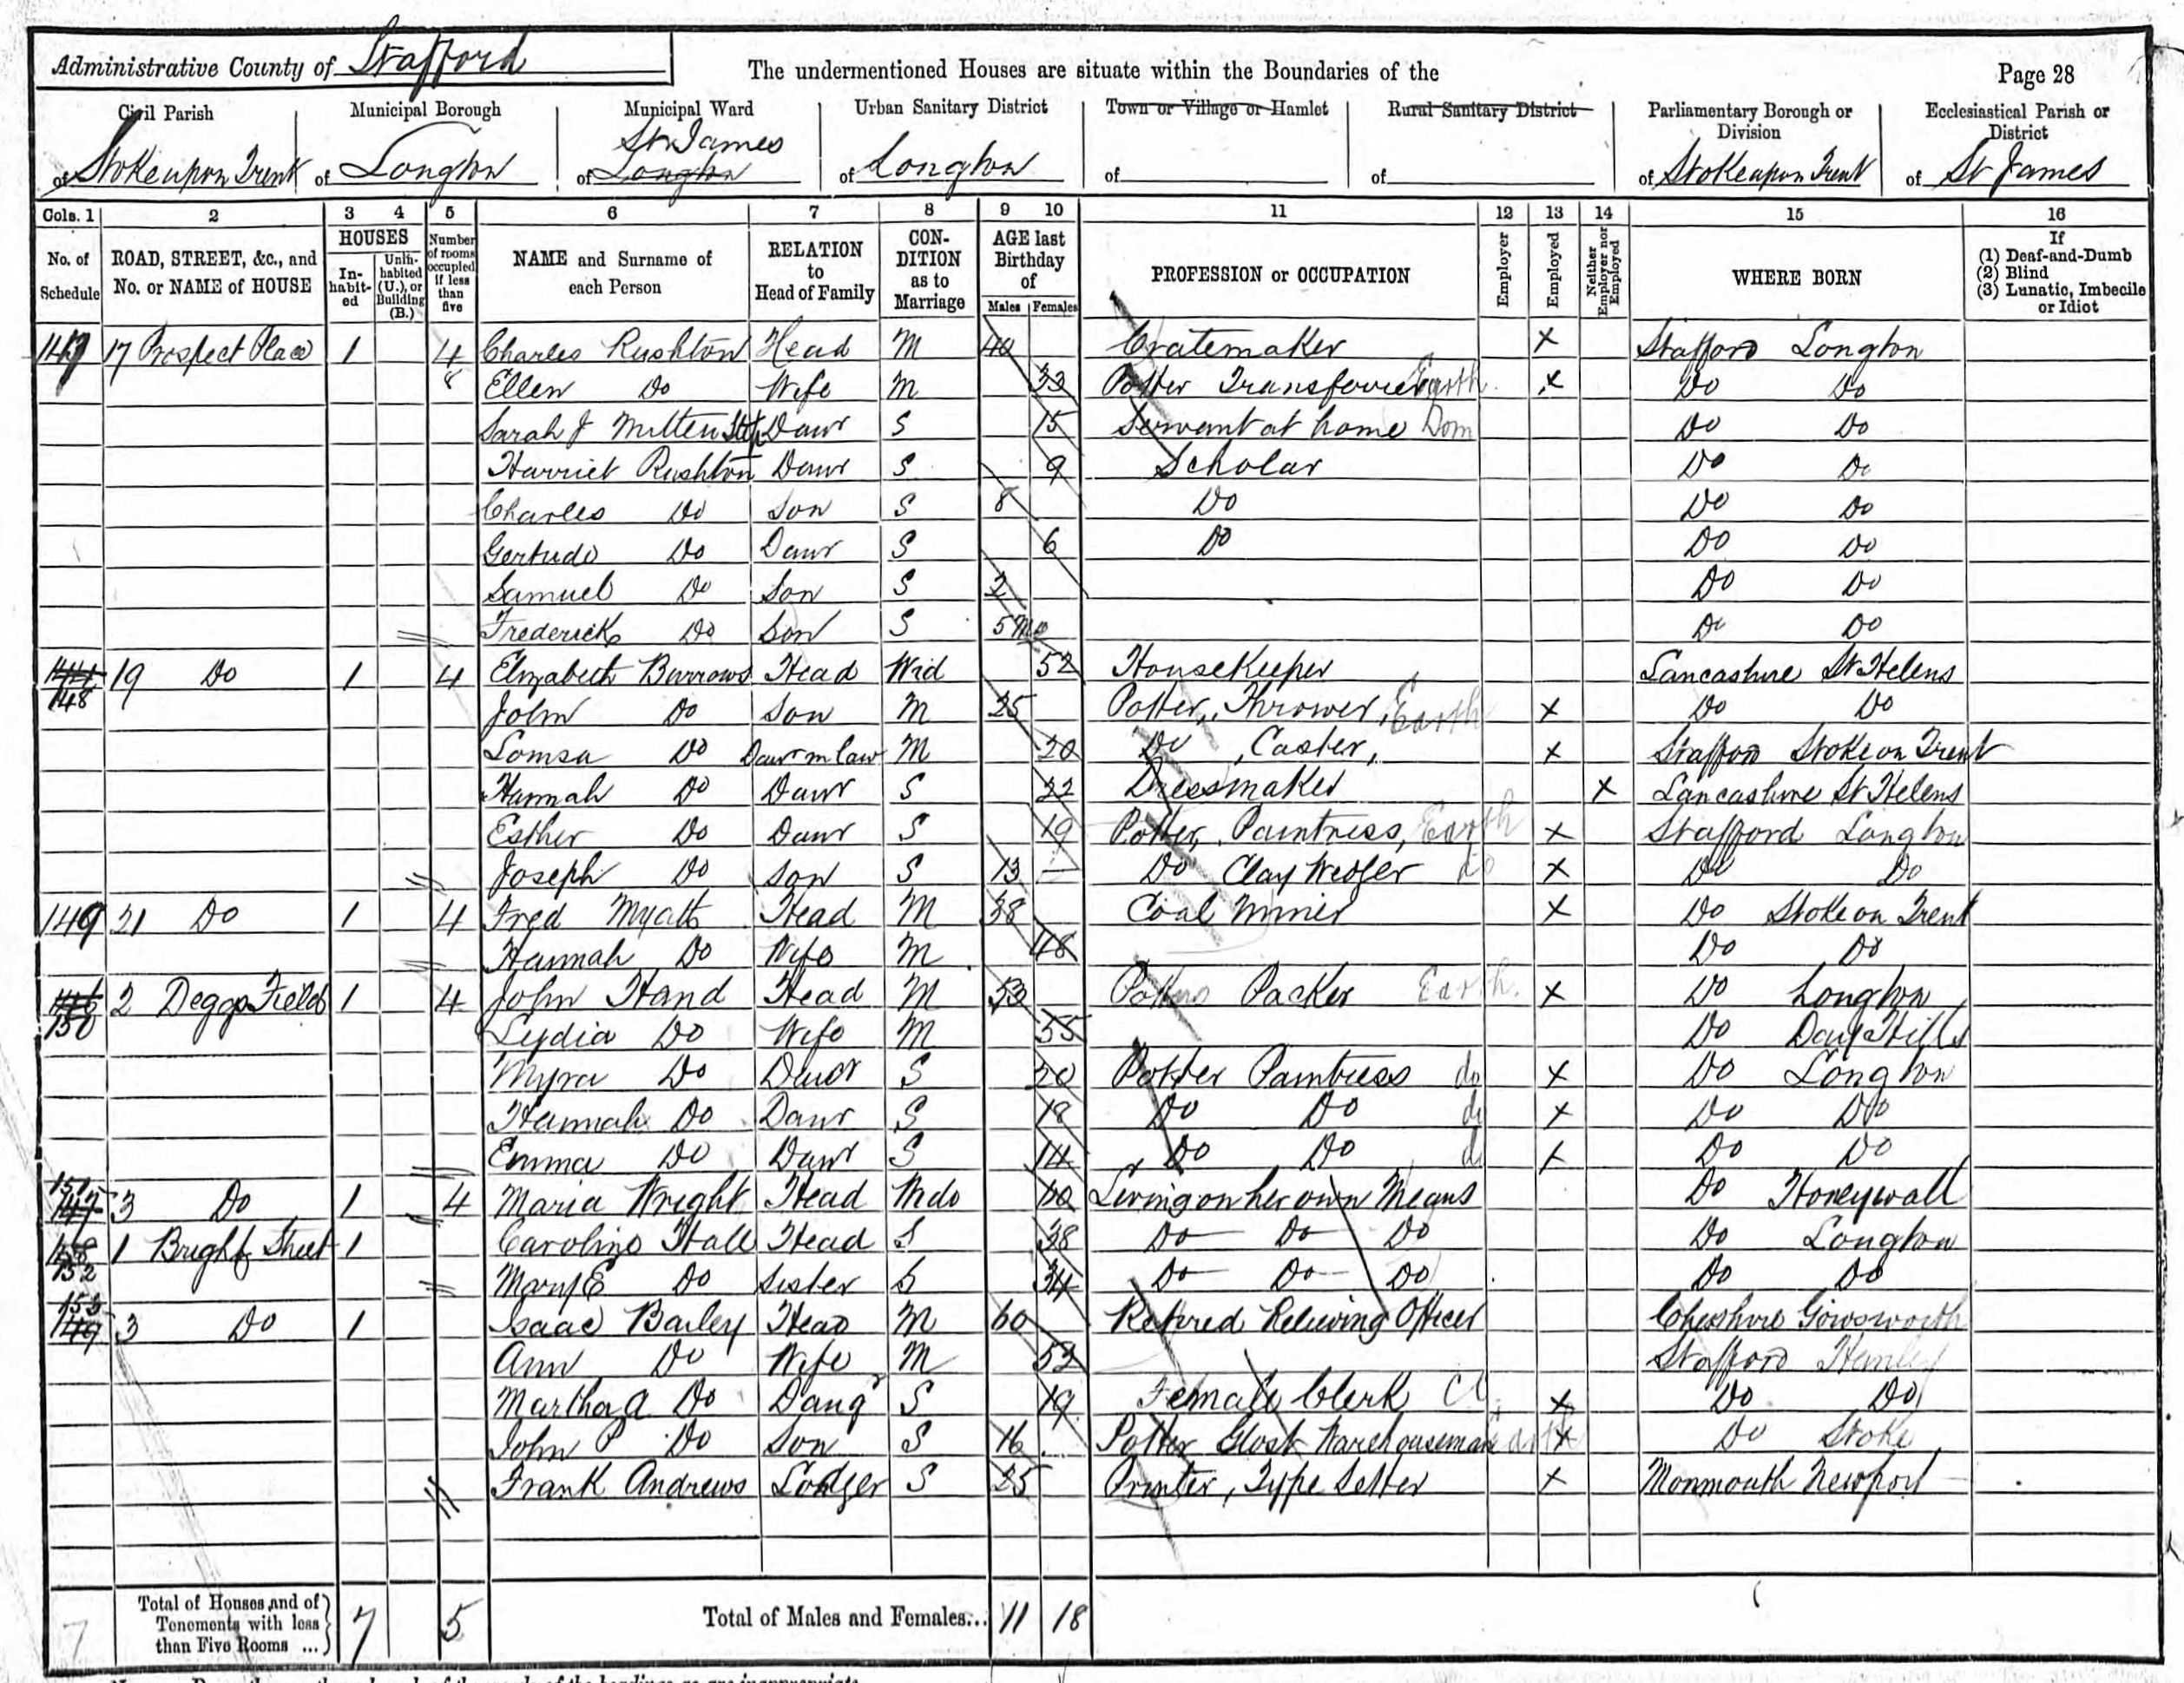 Administrative County of Stafford
The undermentioned Houses are situate within the Boundaries of the
Page 28
Civil Parish | Municipal Borough | Municipal Ward | Urban Sanitary District | Town or Village or Hamlet | Rural Sanitary District | Parliamentary Borough or Division | Ecclesiastical Parish or District
of Stoke upon Trent | of Longton | of Longton St James | of Longton | of | of | of Stoke upon Trent | of St James
Cols. 1 | 2 | 3 | 4 | 5 | 6 | 7 | 8 | 9 | 10 | 11 | 12 | 13 | 14 | 15 | 16
No. of Schedule | ROAD, STREET, &c., and No. or NAME of HOUSE | HOUSES | Inhabited | Uninhabited (U.), or Building (B.) | Number of rooms occupied if less than five | NAME and Surname of each Person | RELATION to Head of Family | CONDITION as to Marriage | AGE last Birthday of | Males | Females | PROFESSION or OCCUPATION | Employer | Employed | Neither Employer nor Employed | WHERE BORN | If (1) Deaf-and-Dumb (2) Blind (3) Lunatic, Imbecile or Idiot
147 | 17 Prospect Place | 1 | 4 | Charles Rushton | Head | M | 40 | Cratemaker | x | Stafford Longton
8 | Ellen Do | Wife | M | 33 | Potter Transferrer Earth | x | Do Do
Sarah J Mitten | Step Daur | S | 15 | Servant at home Dom | Do Do
Harriet Rushton | Daur | S | 9 | Scholar | Do Do
Charles Do | Son | S | 8 | Do | Do Do
Gertude Do | Daur | S | 6 | Do | Do Do
Samuel Do | Son | S | 2 | Do Do
Frederick Do | Son | S | 5 Mo | Do Do
148 | 19 Do | 1 | 4 | Elizabeth Burrows | Head | Wid | 52 | Housekeeper | Lancashire St Helens
John Do | Son | M | 25 | Potter, Thrower, Earth | x | Do Do
Do | Daur in law | M | 20 | Do, Caster, | x | Stafford Stoke on Trent
Hannah Do | Daur | S | 22 | Dressmaker | x | Lancashire St Helens
Esther Do | Daur | S | 19 | Potter, Paintress, Earth | x | Stafford Longton
Joseph Do | Son | S | 13 | Do Clay Wedger do | x | Do Do
149 | 21 Do | 1 | 4 | Fred Myatt | Head | M | 38 | Coal Miner | x | Do Stoke on Trent
Hannah Do | Wife | M | 48 | Do Do
150 | 2 Deggs Field | 1 | 4 | John Hand | Head | M | 53 | Potters Packer Earth. | x | Do Longton
Lydia Do | Wife | M | 55 | Do
Myra Do | Daur | S | 20 | Potter Paintress do | x | Do Longton
Hannah Do | Daur | S | 18 | Do Do do | x | Do Do
Emma Do | Daur | S | 14 | Do Do do | x | Do Do
151 | 3 Do | 1 | 4 | Maria Wright | Head | Wido | 60 | Living on her own Means | Do Honeywall
152 | 1 Bright Street | 1 | Caroline Hall | Head | S | 38 | Do Do Do | Do Longton
Mary E Do | Sister | S | 34 | Do Do Do | Do Do
153 | 3 Do | 1 | Isaac Bailey | Head | M | 60 | Retired Relieving Officer | Cheshire Gowsworth
Ann Do | Wife | M | 52 | Stafford Hanley
Martha A Do | Daugr | S | 19 | Female Clerk Cl. | x | Do Do
John P Do | Son | S | 16 | Potter Glost Warehouseman Earth | x | Do Stoke
Frank Andrews | Lodger | S | 25 | Printer, Type Setter | x | Monmouth Newport
7 | Total of Houses and of Tenements with less than Five Rooms ... | 7 | 5 | Total of Males and Females... | 11 | 18